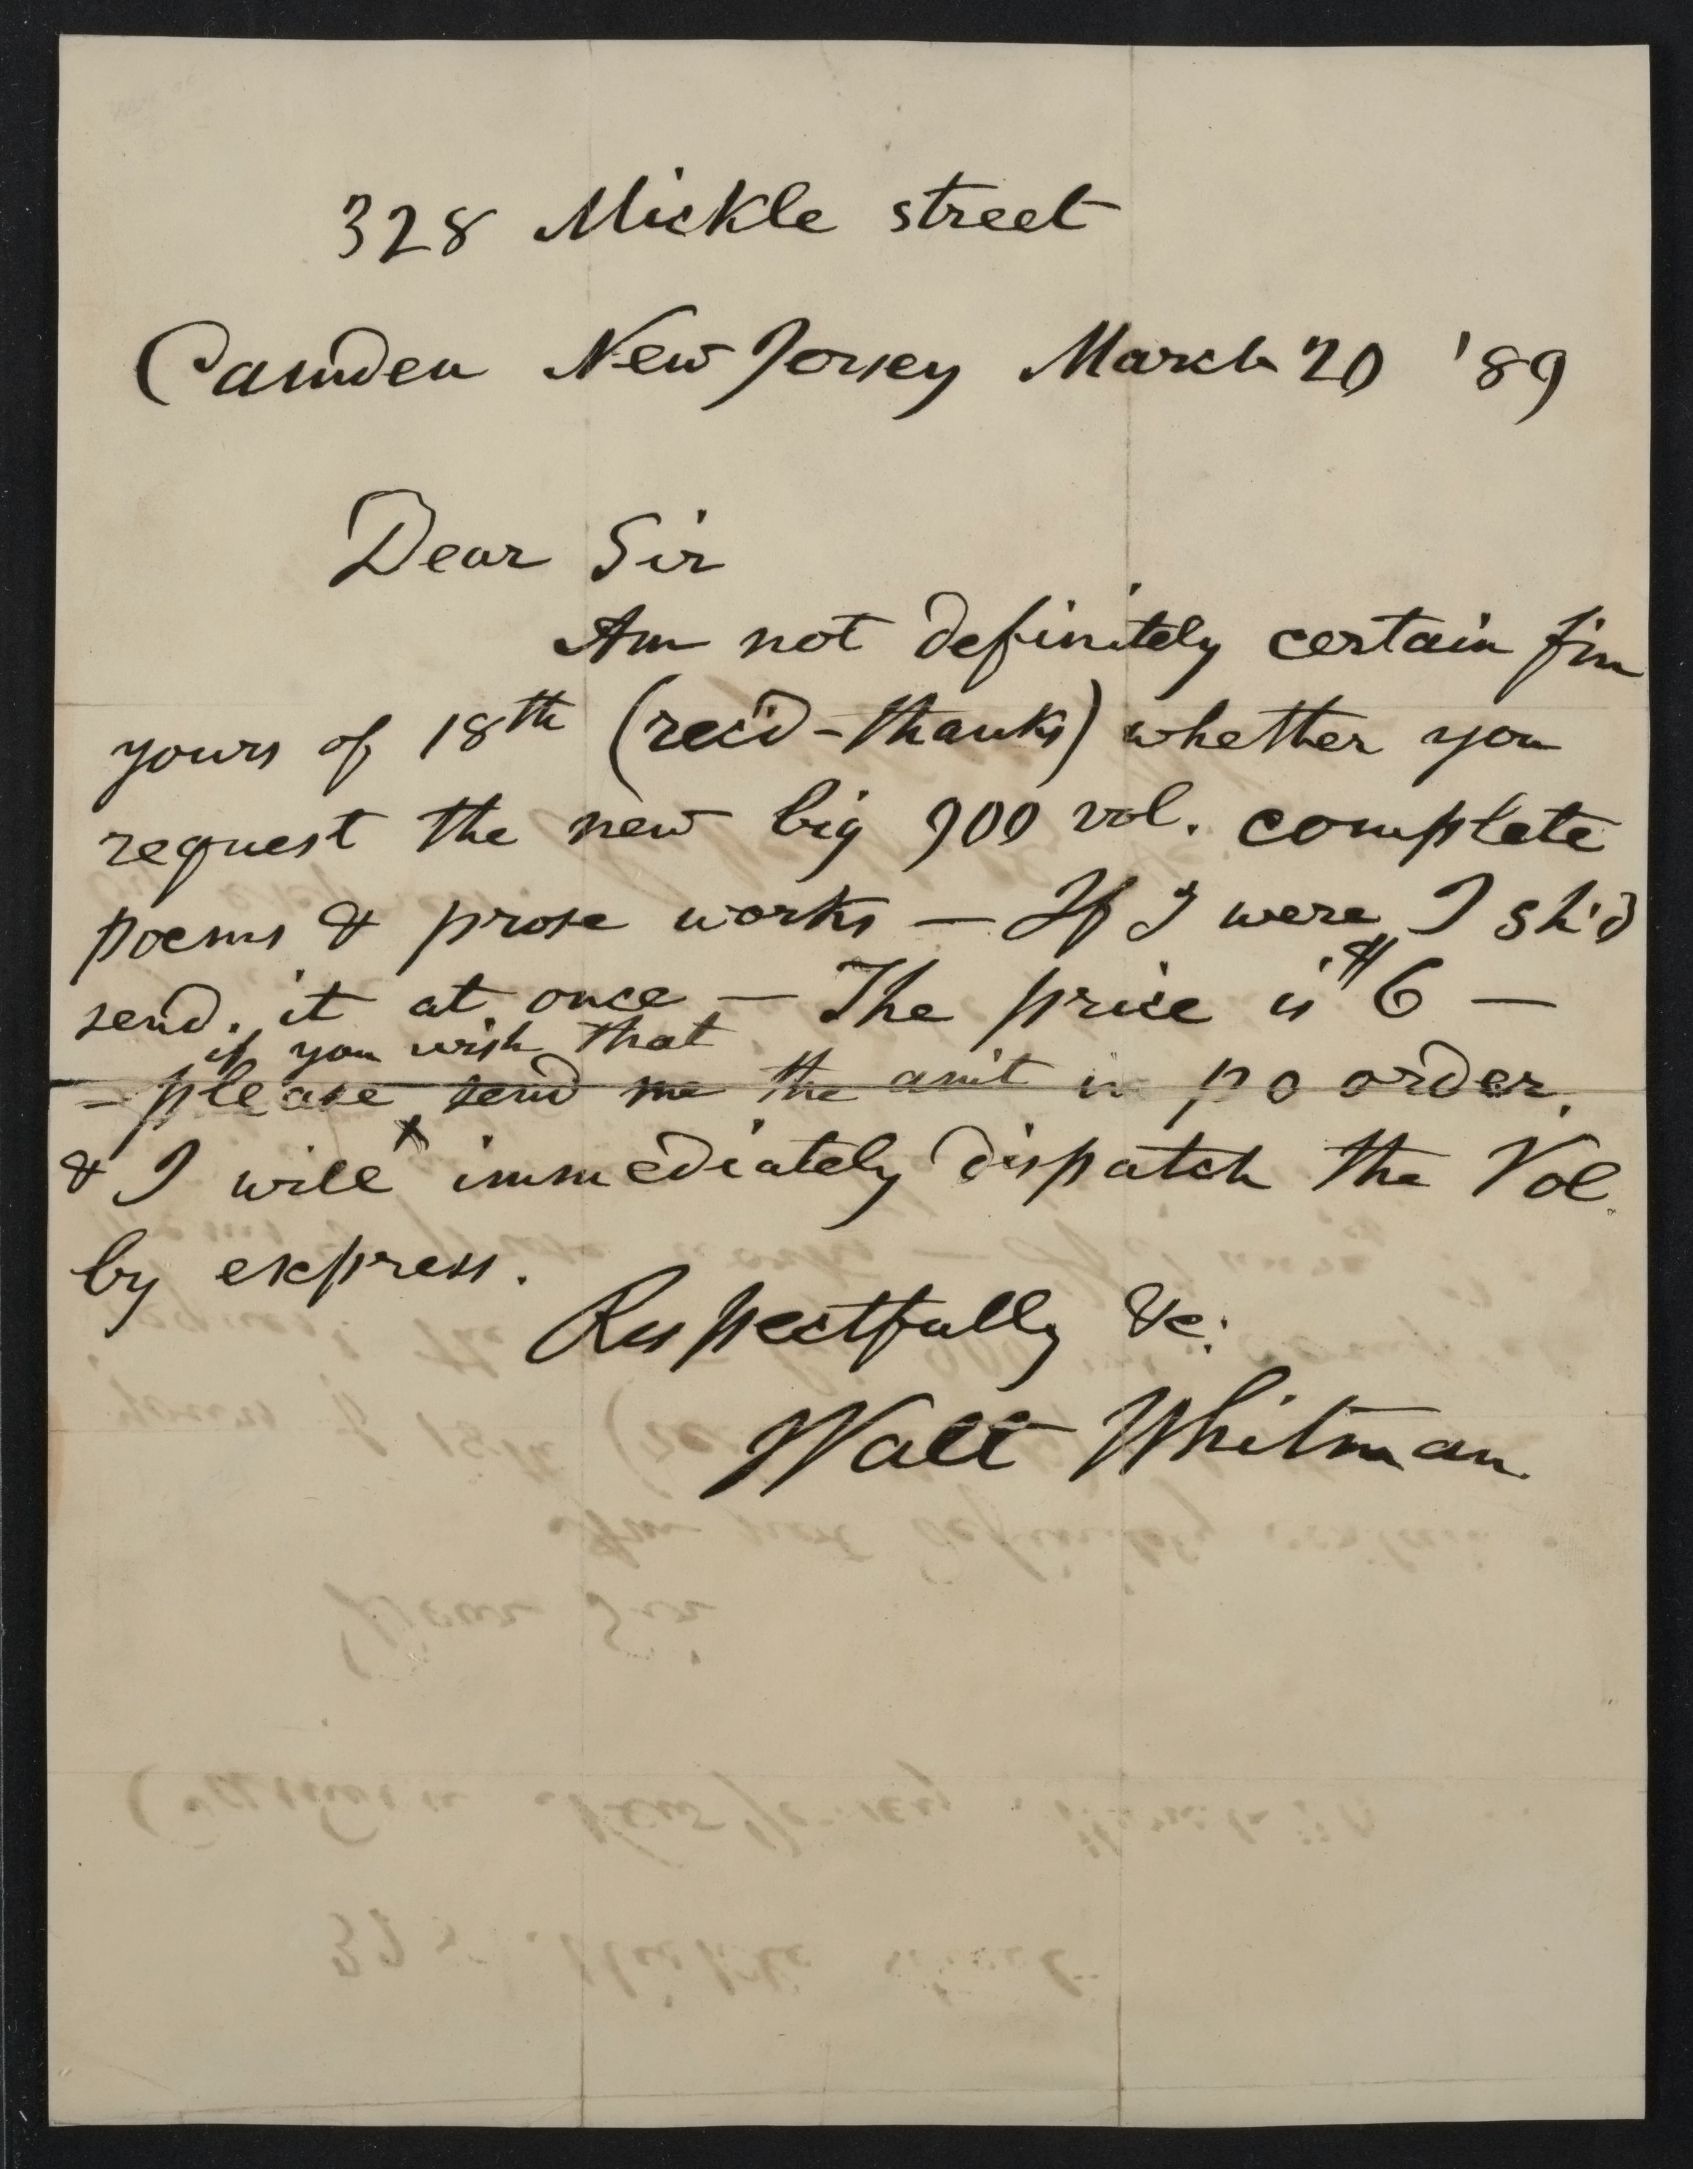 328 Mickle street
Camden New Jersey March 20 '89
Dear Sir
Am not definitely certain f'm
yours of 18th (rec'd - thanks) whether you
request the new big 900 vol. complete
poems & prose works — If I were I sh'd
send it at once — The price is $6 —
if you wish that
- please send me the am't in p o order,
& I will immediately dispatch the Vol.
by express.
Respectfully &c:
Walt Whitman